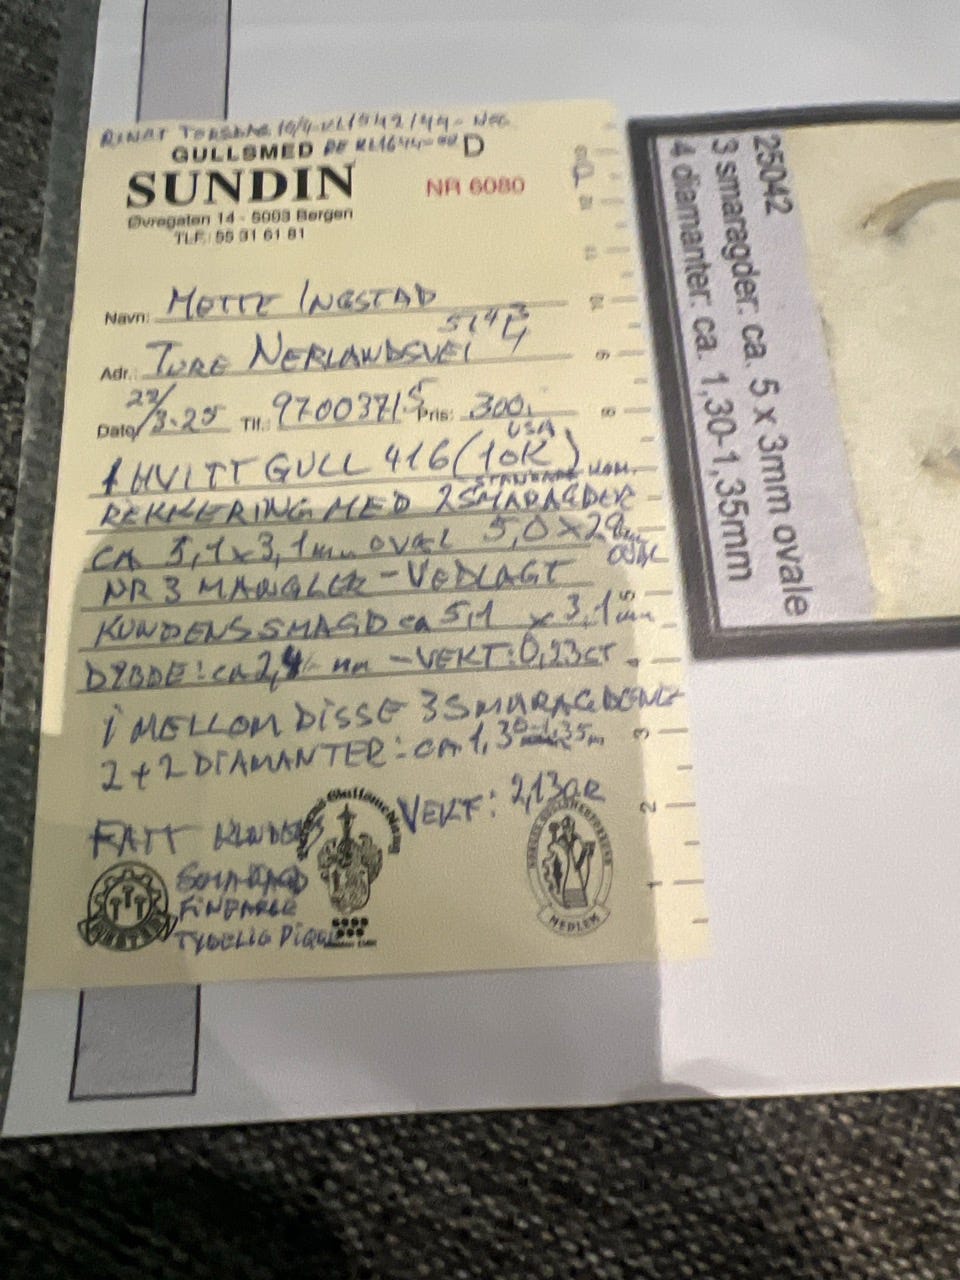 RINGT TORSDAG 10/4 KL1542/44 -
GULLSMED D
SUNDIN
NR 6080
Øvregaten 14 - 5003 Bergen
TLF.: 55 31 61 81
Navn: METTE INGSTAD
Adr.: TORE NERLANDSVEI
Dato 3-25 Tlf.: 97003715 Pris: 300,
USA
1 HVITT GULL 416 (10K)
STANDARD
REKKERING MED 2 SMARAGDER
CA 5,1 x 3,1 mm OVAL 5,0 x 2,9
OVAL
NR 3 MANGLER - VEDLAGT
KUNDENS SMAGD ca 5,1 x 3,1 mm
DYBDE: ca 2,4 mm - VEKT: 0,23 CT
i MELLOM DISSE 3 SMARAGDENE
2 + 2 DIAMANTER: ca 1,30-1,35
VEKT: 2,13 GR
FATT KUNDENS
SMARAGD
FIN FARGE
TYDELIG PIQUE
MEDLEM
9
8
5
4
3
2
1
25042
3 smaragder: ca. 5 x 3mm ovale
4 diamanter: ca. 1,30-1,35mm